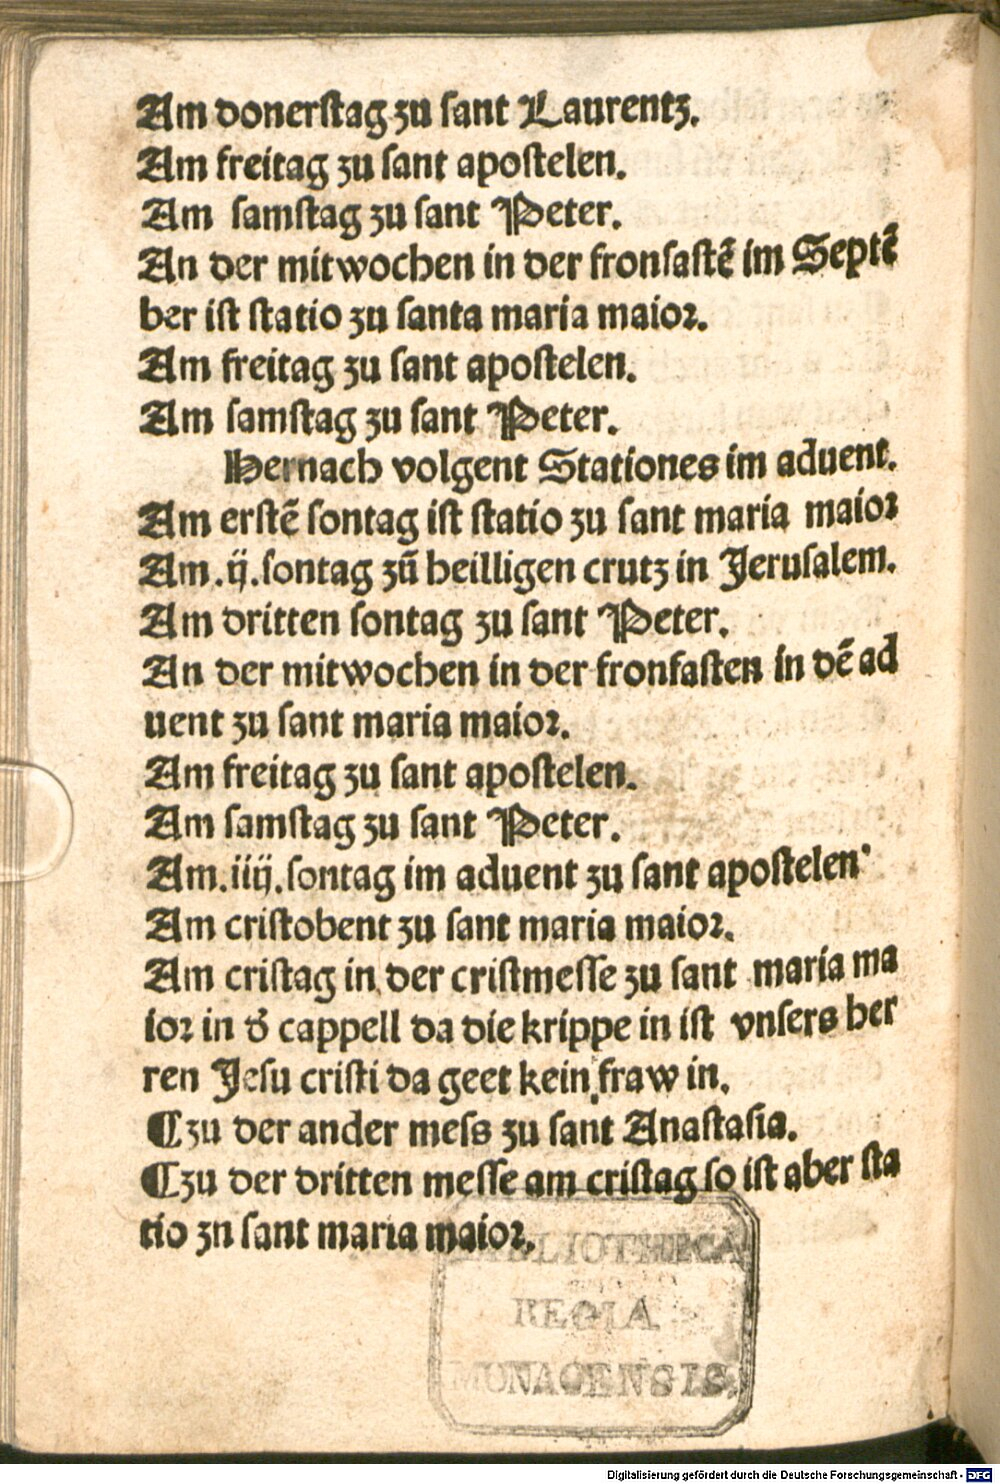 Am donerſtag zu ſant Laurentz.
Am freitag zu ſant apoſtelen.
Am ſamſtag zu ſant Peter.
An der mitwochen in der fronfaſtē im Septē
ber iſt ſtatio zu ſanta maria maioꝛ.
Am freitag zu ſant apoſtelen.
Am ſamſtag zu ſant Peter.
Hernach volgent Stationes im aduent.
Am erſtē ſontag iſt ſtatio zu ſant maria maioꝛ
Am .ij. ſontag zū heilligen crutz in Jeruſalem.
Am dritten ſontag zu ſant Peter.
An der mitwochen in der fronfaſten in dē ad
uent zu ſant maria maioꝛ.
Am freitag zu ſant apoſtelen.
Am ſamſtag zu ſant Peter.
Am .iiij. ſontag im aduent zu ſant apoſtelen·
Am criſtobent zu ſant maria maioꝛ.
Am criſtag in der criſtmeſſe zu ſant maria ma
ioꝛ in d̕ cappell da die krippe in iſt vnſers her
ren Jeſu criſti da geet kein fraw in.
¶ zu der ander meſs zu ſant Anaſtaſia.
¶ zu der dritten meſſe am criſtag ſo iſt aber ſta
tio zn ſant maria maioꝛ.
BIBLIOTHECA
REGIA
MONACENSIS.
Digitalisierung gefördert durch die Deutsche Forschungsgemeinschaft - DFG